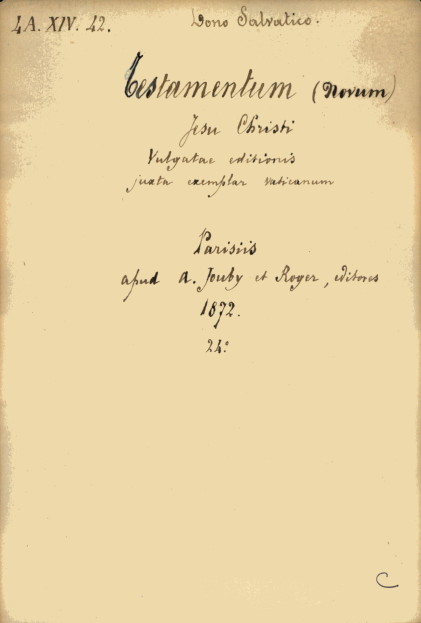 4A. XIV. 42.
Dono Salvatico.
Testamentum (Novum)
Jesu Christi
Vulgatae editionis
juxta exemplar vaticanum
Parisiis
apud A. Jouby et Roger, editores
1872.
24°
C